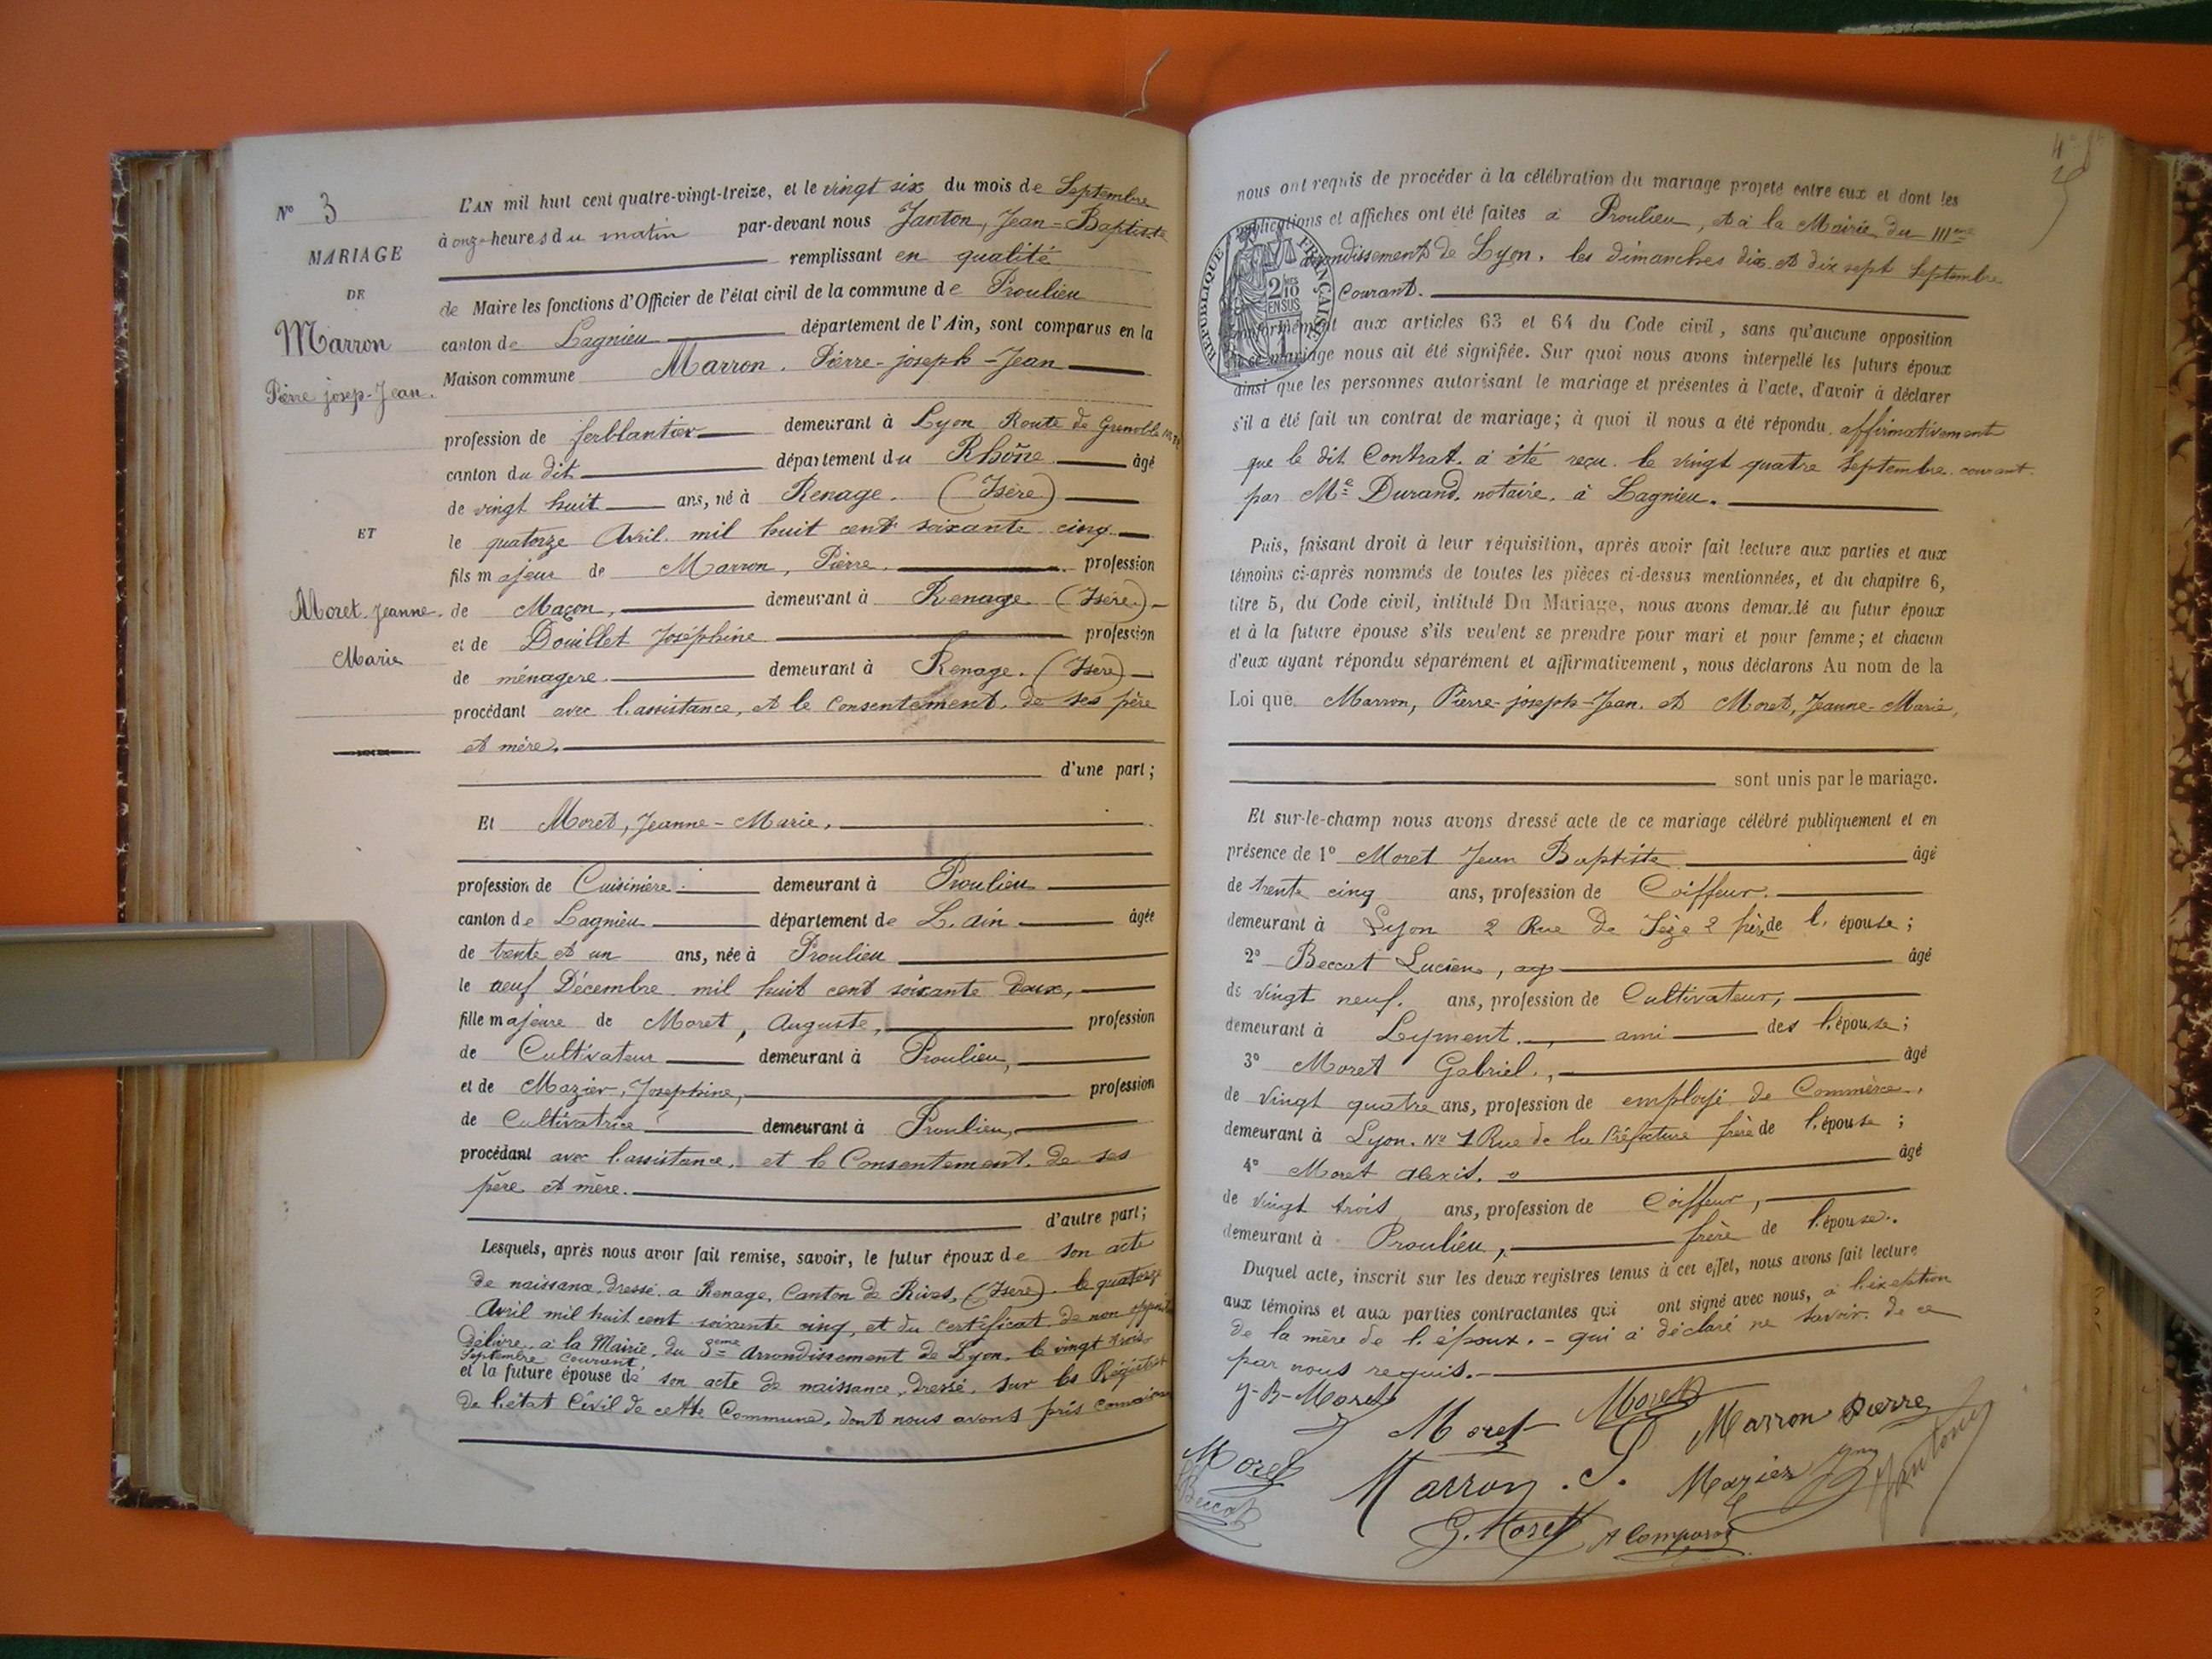 N° 3
MARIAGE
DE
Marron
Pierre josep-Jean.
ET
Moret Jeanne
Marie
L'AN mil huit cent quatre-vingt-treize, et le vingt six du mois de Septembre
à onze heures du matin par-devant nous Janton, Jean-Baptiste
remplissant en qualité
de Maire les fonctions d'Officier de l'état civil de la commune de Proulieu
canton de Lagnieu département de l'Ain, sont comparus en la
Maison commune Marron, Pierre-joseph-Jean
profession de ferblantier demeurant à Lyon Route de Grenoble
canton du dit département du Rhône âgé
de vingt huit ans, né à Renage. (Isère)
le quatorze Avril mil huit cent soixante cinq
fils majeur de Marron, Pierre. profession
de Maçon, demeurant à Renage (Isère)
et de Douillet Joséphine profession
de ménagère. demeurant à Renage. (Isère)
procédant avec l'assistance, et le Consentement, de ses père
et mère.
d'une part;
Et Moret, Jeanne-Marie,
profession de Cuisinière. demeurant à Proulieu
canton de Lagnieu département de L'Ain âgée
de trente et un ans, née à Proulieu
le neuf Décembre mil huit cent soixante deux,
fille majeure de Moret, Auguste, profession
de Cultivateur demeurant à Proulieu,
et de Mazier, Josephine, profession
de Cultivatrice demeurant à Proulieu,
procédant avec l'assistance, et le Consentement, de ses
père et mère.
d'autre part;
Lesquels, après nous avoir fait remise, savoir, le futur époux de son acte
de naissance, dressé, a Renage, Canton de Rives, (Isère), le quatorze
Avril mil huit cent soixante cinq, et du certificat, de non
Délivré, à la Mairie, du 3eme Arrondissement de Lyon, le vingt trois
Septembre courant,
et la future épouse de son acte de naissance, dressé, sur les Régistres
De l'état Civil de cette Commune, dont nous avons pris
nous ont requis de procéder à la célébration du mariage projeté entre eux et dont les
publications et affiches ont été faites à Proulieu, et à la Mairie du IIIme
arrondissement de Lyon, les dimanches dix et dix sept Septembre
Courant.
RÉPUBLIQUE FRANÇAISE
2/10
EN SUS
1
conformément aux articles 63 et 64 du Code civil, sans qu'aucune opposition
au ce mariage nous ait été signifiée. Sur quoi nous avons interpellé les futurs époux
ainsi que les personnes autorisant le mariage et présentes à l'acte, d'avoir à déclarer
s'il a été fait un contrat de mariage; à quoi il nous a été répondu affirmativement
que le dit Contrat. a été reçu le vingt quatre Septembre courant
par Me Durand, notaire, à Lagnieu.
Puis, faisant droit à leur réquisition, après avoir fait lecture aux parties et aux
témoins ci-après nommés de toutes les pièces ci-dessus mentionnées, et du chapitre 6,
titre 5, du Code civil, intitulé Du Mariage, nous avons demandé au futur époux
et à la future épouse s'ils veulent se prendre pour mari et pour femme; et chacun
d'eux ayant répondu séparément et affirmativement, nous déclarons Au nom de la
Loi que Marron, Pierre-joseph-Jean. et Moret, Jeanne-Marie,
sont unis par le mariage.
Et sur-le-champ nous avons dressé acte de ce mariage célébré publiquement et en
présence de 1° Moret Jean Baptiste âgé
de trente cinq ans, profession de Coiffeur.
demeurant à Lyon 2 Rue De Sèze 2 frère de l'épouse;
2° Beccat Lucien, âgé
de vingt neuf. ans, profession de Cultivateur,
demeurant à Leyment, ami des l'épouse;
3° Moret Gabriel, âgé
de vingt quatre ans, profession de employé de Commèrce,
demeurant à Lyon. N° 1 Rue de la Préfecture frère de l'épouse;
4° Moret alexis. âgé
de vingt trois ans, profession de Coiffeur,
demeurant à Proulieu, frère de l'épouse.
Duquel acte, inscrit sur les deux registres tenus à cet effet, nous avons fait lecture
aux témoins et aux parties contractantes qui ont signé avec nous, à l'exeption
de la mère de l'époux. - qui a déclaré ne savoir. de ce
par nous requis.
J-B-Moret
Moret
Moret
Marron Pierre
Moret
Marron. J.
Mazier
Janton
Beccat
G. Moret